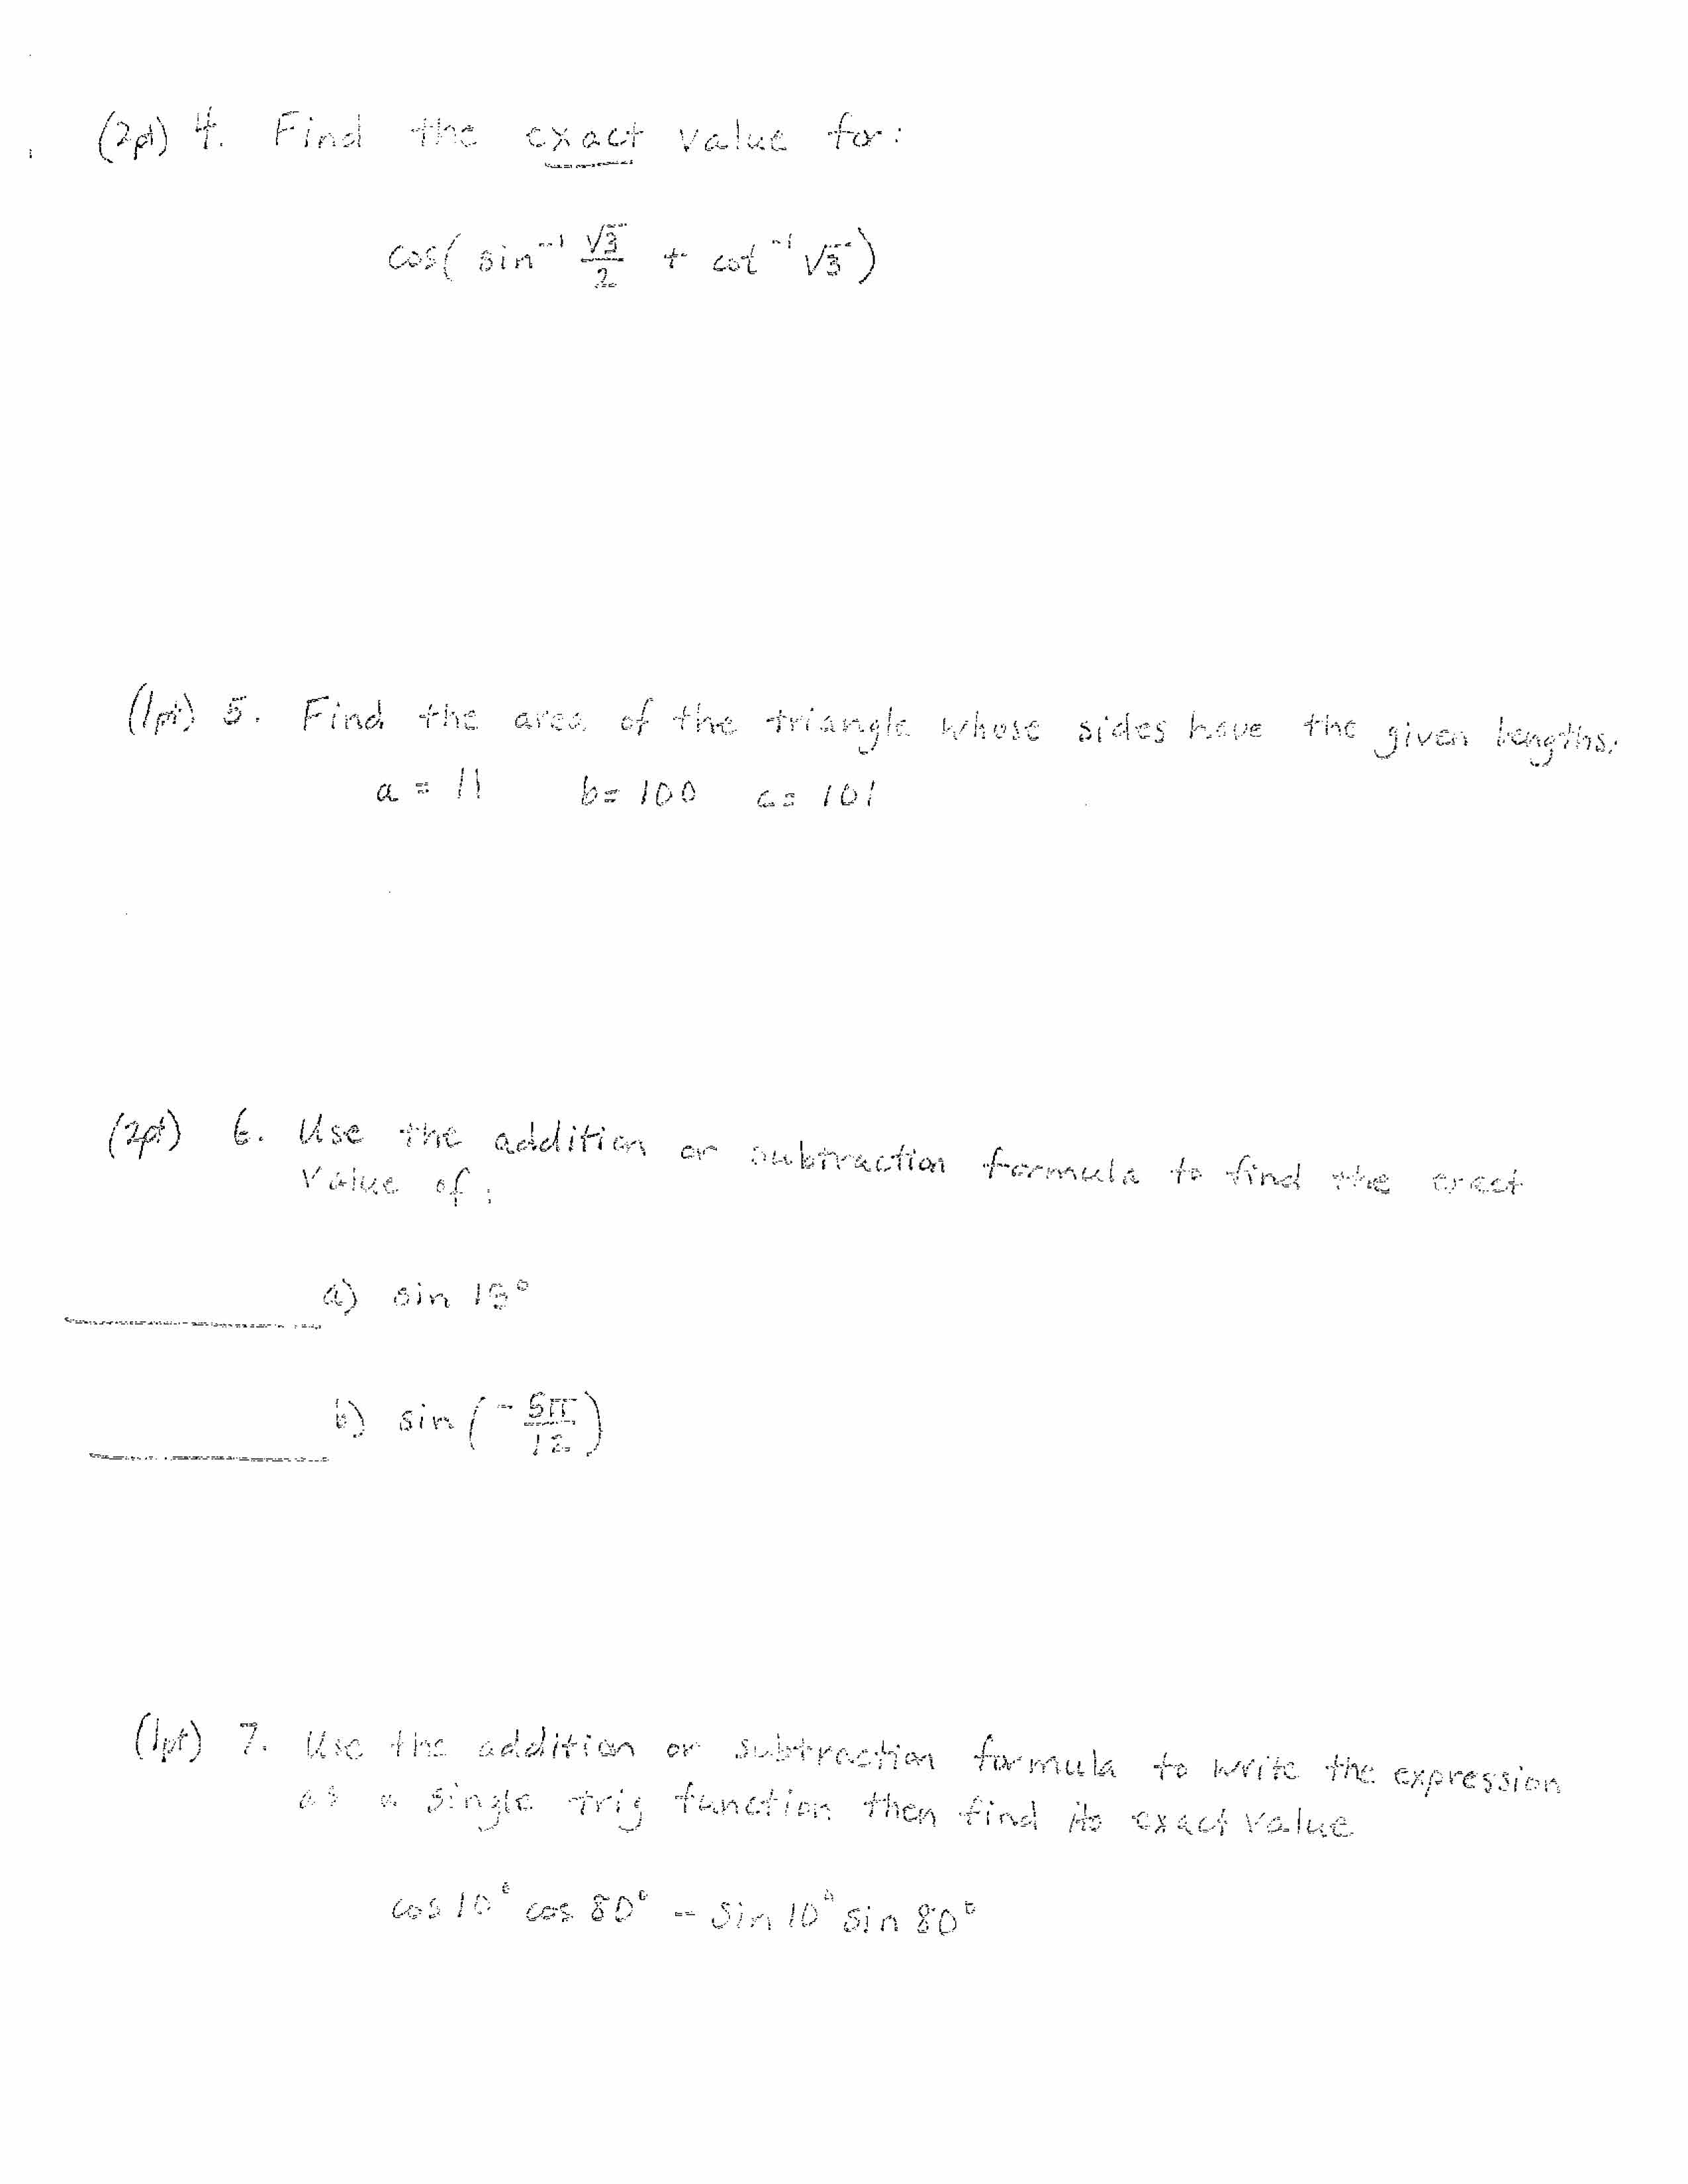 (2pt) 4. Find the exact value for:
cos( sin⁻¹ √3/2 + cot⁻¹ √3 )
(1pt) 5. Find the area of the triangle whose sides have the given lengths.
a = 11 b= 100 c= 101
(2pt) 6. Use the addition or subtraction formula to find the exact
value of:
a) sin 15°
b) sin (- 5π/12)
(1pt) 7. Use the addition or subtraction formula to write the expression
as a single trig function then find its exact value
cos 10° cos 80° - sin 10° sin 80°